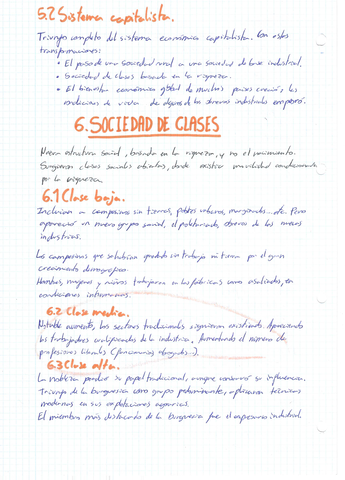 5.2 Sistema capitalista.
Triunfo completo del sistema económico capitalista. Con estas
transformaciones:
• El paso de una sociedad rural a una sociedad de base industrial.
• Sociedad de clases basada en la riqueza.
• El bienestar económico global de muchos países creció, las
condiciones de vida de algunos de los obreros industriales empeoró.
6. SOCIEDAD DE CLASES
Nueva estructura social, basada en la riqueza, y no el nacimiento.
Surgieron clases sociales abiertas, donde existía movilidad condicionada
por la riqueza.
6.1 Clase baja.
Incluían a campesinos sin tierras, pobres urbanos, marginados... etc. Pero
apareció un nuevo grupo social, el proletariado, obreros de las nuevas
industrias.
Los campesinos que quedaron sin trabajo por el gran
crecimiento demográfico.
Hombres, mujeres y niños trabajaron en las fábricas como asalariados, en
condiciones infrahumanas.
6.2 Clase media.
Notable aumento, los sectores tradicionales siguieron existiendo. Apareciendo
los trabajadores cualificados de la industria, fomentando el número de
profesiones liberales (funcionarios abogados...).
6.3 Clase alta.
La nobleza perdió su papel tradicional, aunque conservó su influencia.
Triunfo de la burguesía como grupo predominante, aplicaron técnicas
modernas en sus explotaciones agrarias.
El miembro más destacado de la burguesía fue el empresario industrial.